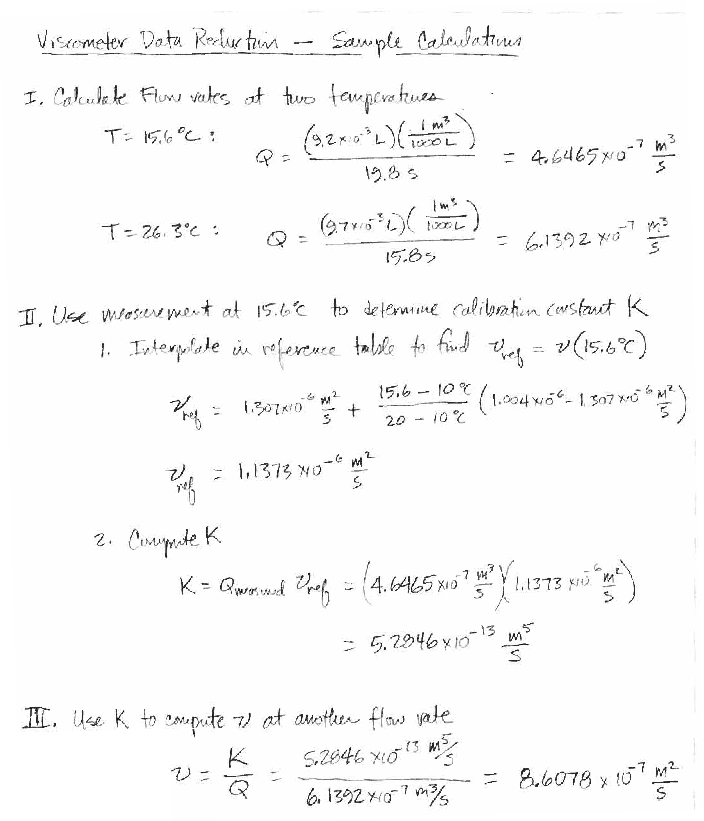 Viscometer Data Reduction — Sample Calculations
I. Calculate Flow rates at two temperatures
T = 15.6°C : Q = (9.2×10⁻³ L)(1 m³/1000 L) / 19.8 s = 4.6465×10⁻⁷ m³/s
T = 26.3°C : Q = (9.7×10⁻³ L)(1 m³/1000 L) / 15.8 s = 6.1392×10⁻⁷ m³/s
II. Use measurement at 15.6°C to determine calibration constant K
1. Interpolate in reference table to find ν_ref = ν(15.6°C)
ν_ref = 1.307×10⁻⁶ m²/s + (15.6 – 10°C)/(20 – 10°C) (1.004×10⁻⁶ – 1.307×10⁻⁶ m²/s)
ν_ref = 1.1373×10⁻⁶ m²/s
2. Compute K
K = Q_measured ν_ref = (4.6465×10⁻⁷ m³/s)(1.1373×10⁻⁶ m²/s)
= 5.2846×10⁻¹³ m⁵/s
III. Use K to compute ν at another flow rate
ν = K/Q = 5.2846×10⁻¹³ m⁵/s / 6.1392×10⁻⁷ m³/s = 8.6078×10⁻⁷ m²/s